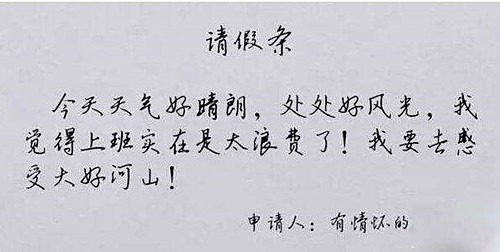 请假条
今天天气好晴朗，处处好风光，我
觉得上班实在是太浪费了！我要去感
受大好河山！
申请人：有情怀的